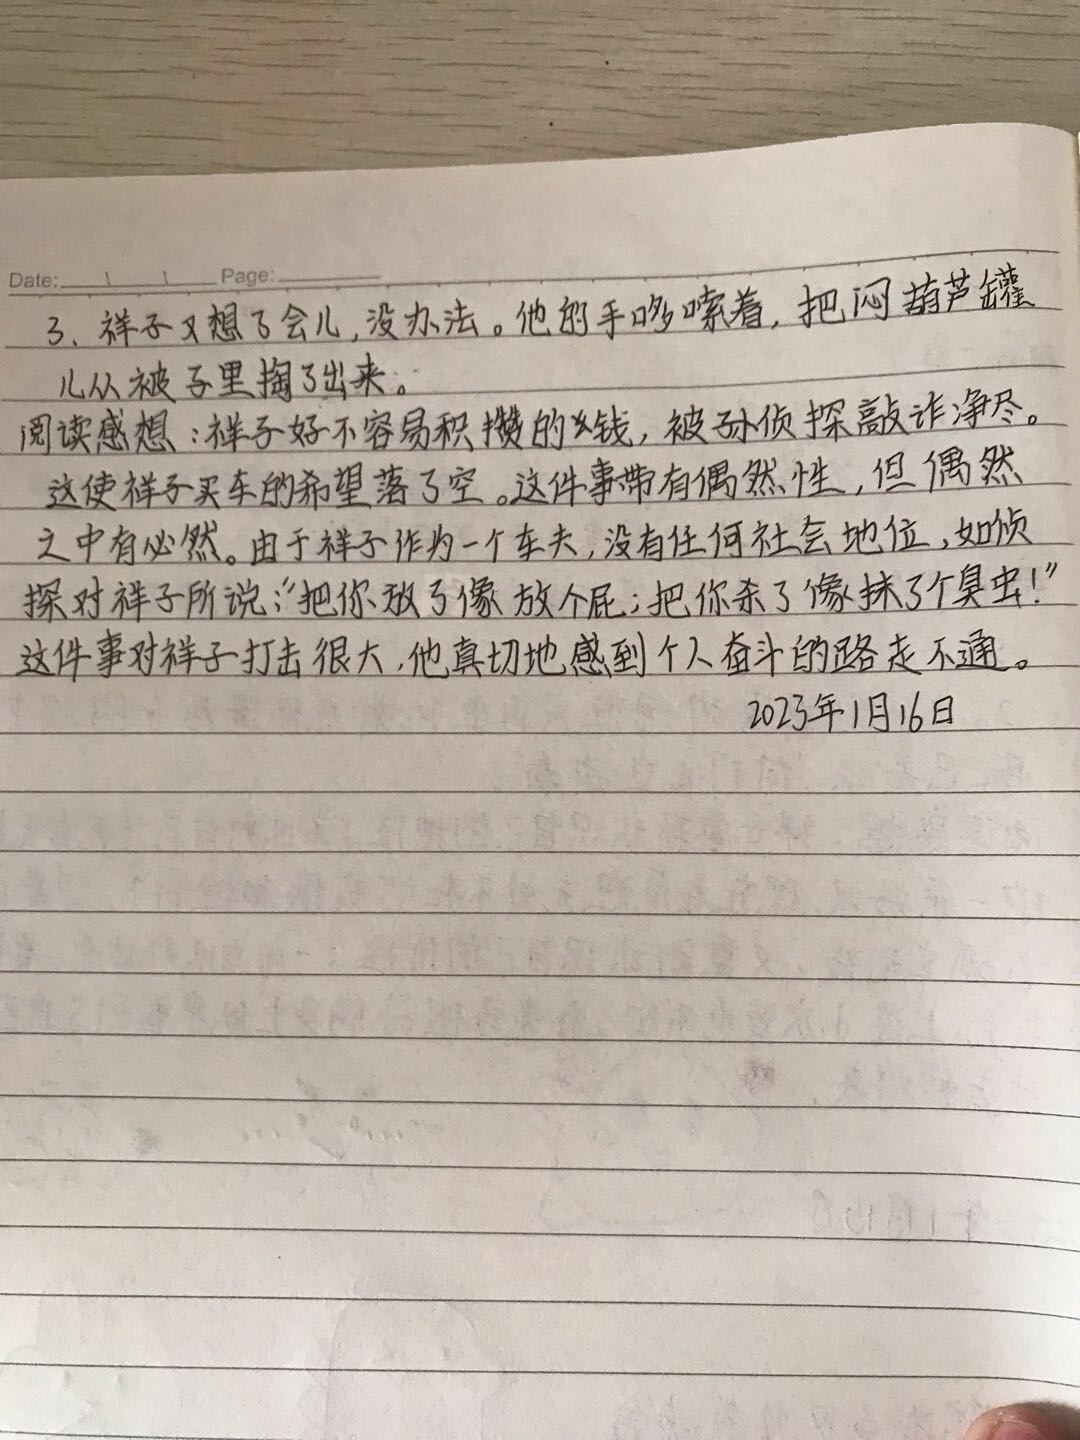 Date: \ \ Page:
3、祥子又想了会儿,没办法。他的手哆嗦着,把闷葫芦罐
儿从被子里掏了出来。
阅读感想:祥子好不容易积攒的钱,被孙侦探敲诈净尽。
这使祥子买车的希望落了空。这件事带有偶然性,但偶然
之中有必然。由于祥子作为一个车夫,没有任何社会地位,如侦
探对祥子所说:“把你放了像放个屁;把你杀了像抹了个臭虫!”
这件事对祥子打击很大,他真切地感到个人奋斗的路走不通。
2023年1月16日